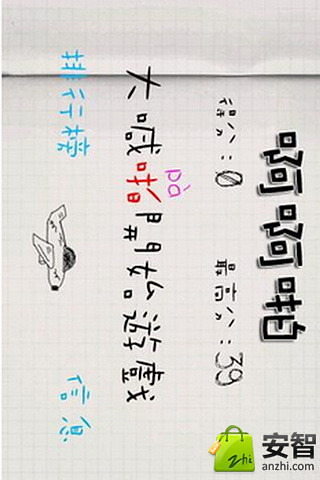 啊啊啪
得分:0 最高分:39
pā
大喊啪開始遊戲
排行榜 信息
zhi
安智
anzhi.com